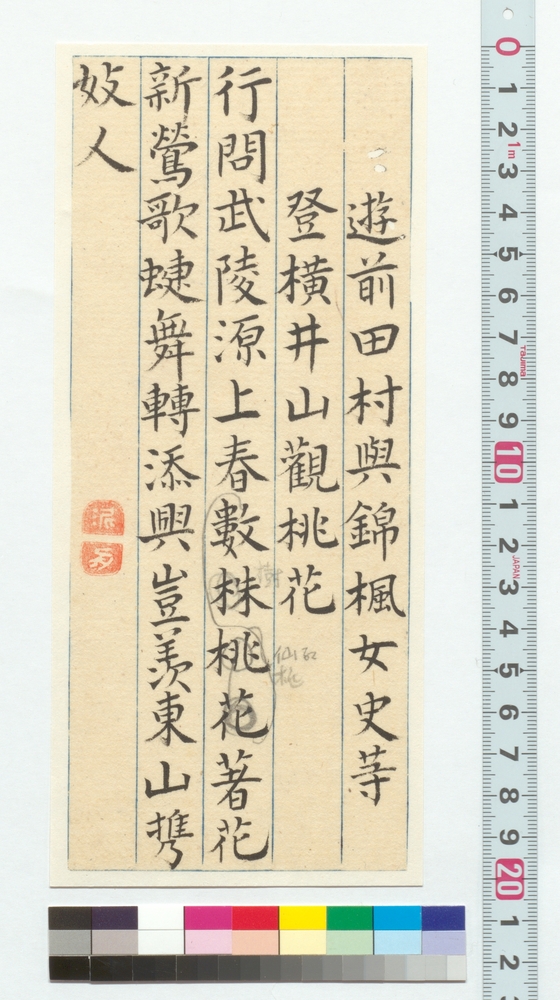 遊前田村與錦楓女史䒭
登横井山觀桃花
行問武陵源上春數株桃花著花
新鶯歌蜨舞轉添興豈羨東山携
妓人
樹
仙
桃
0 1 2 3 4 5 6 7 8 9 10 1 2 3 4 5 6 7 8 9 20 1 2
1m
Tajima
JAPAN